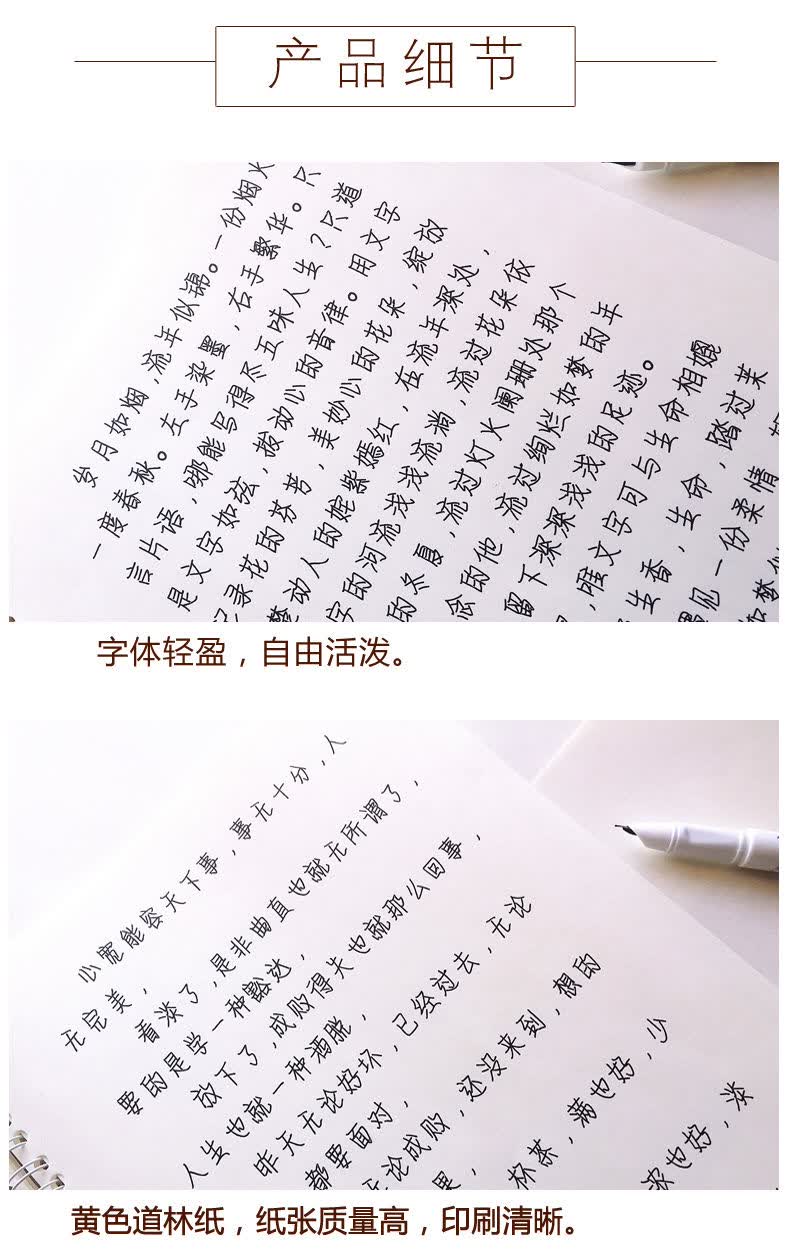 产品细节
岁月如烟,流年似锦。一份烟火
一度春秋。左手染墨,右手繁华。只
言片语,哪能写得尽五味人生?只道
是文字如弦,拨动心的音律。用文字
记录花的芬芳,美妙心的花朵,绽放
梦动人的姹紫嫣红,在流年深处,
字的河流浅浅流淌,流过花朵依
的冬夏,流过灯火阑珊处那个
的他,流过绚烂如梦的年
留下深深浅浅的足迹。
,唯文字可与生命相媲
生香,生命,踏过茉
遇见一份柔情
字体轻盈，自由活泼。
心宽能容天下事,事无十分,人
无完美,
看淡了,是非曲直也就无所谓了,
要的是学一种豁达,
放下了,成败得失也就那么回事,
人生也就一种洒脱,
昨天无论好坏,已经过去,无论
都要面对,
无论成败,还没来到,想的
果,
杯茶,满也好,少
浓也好,淡
黄色道林纸，纸张质量高，印刷清晰。